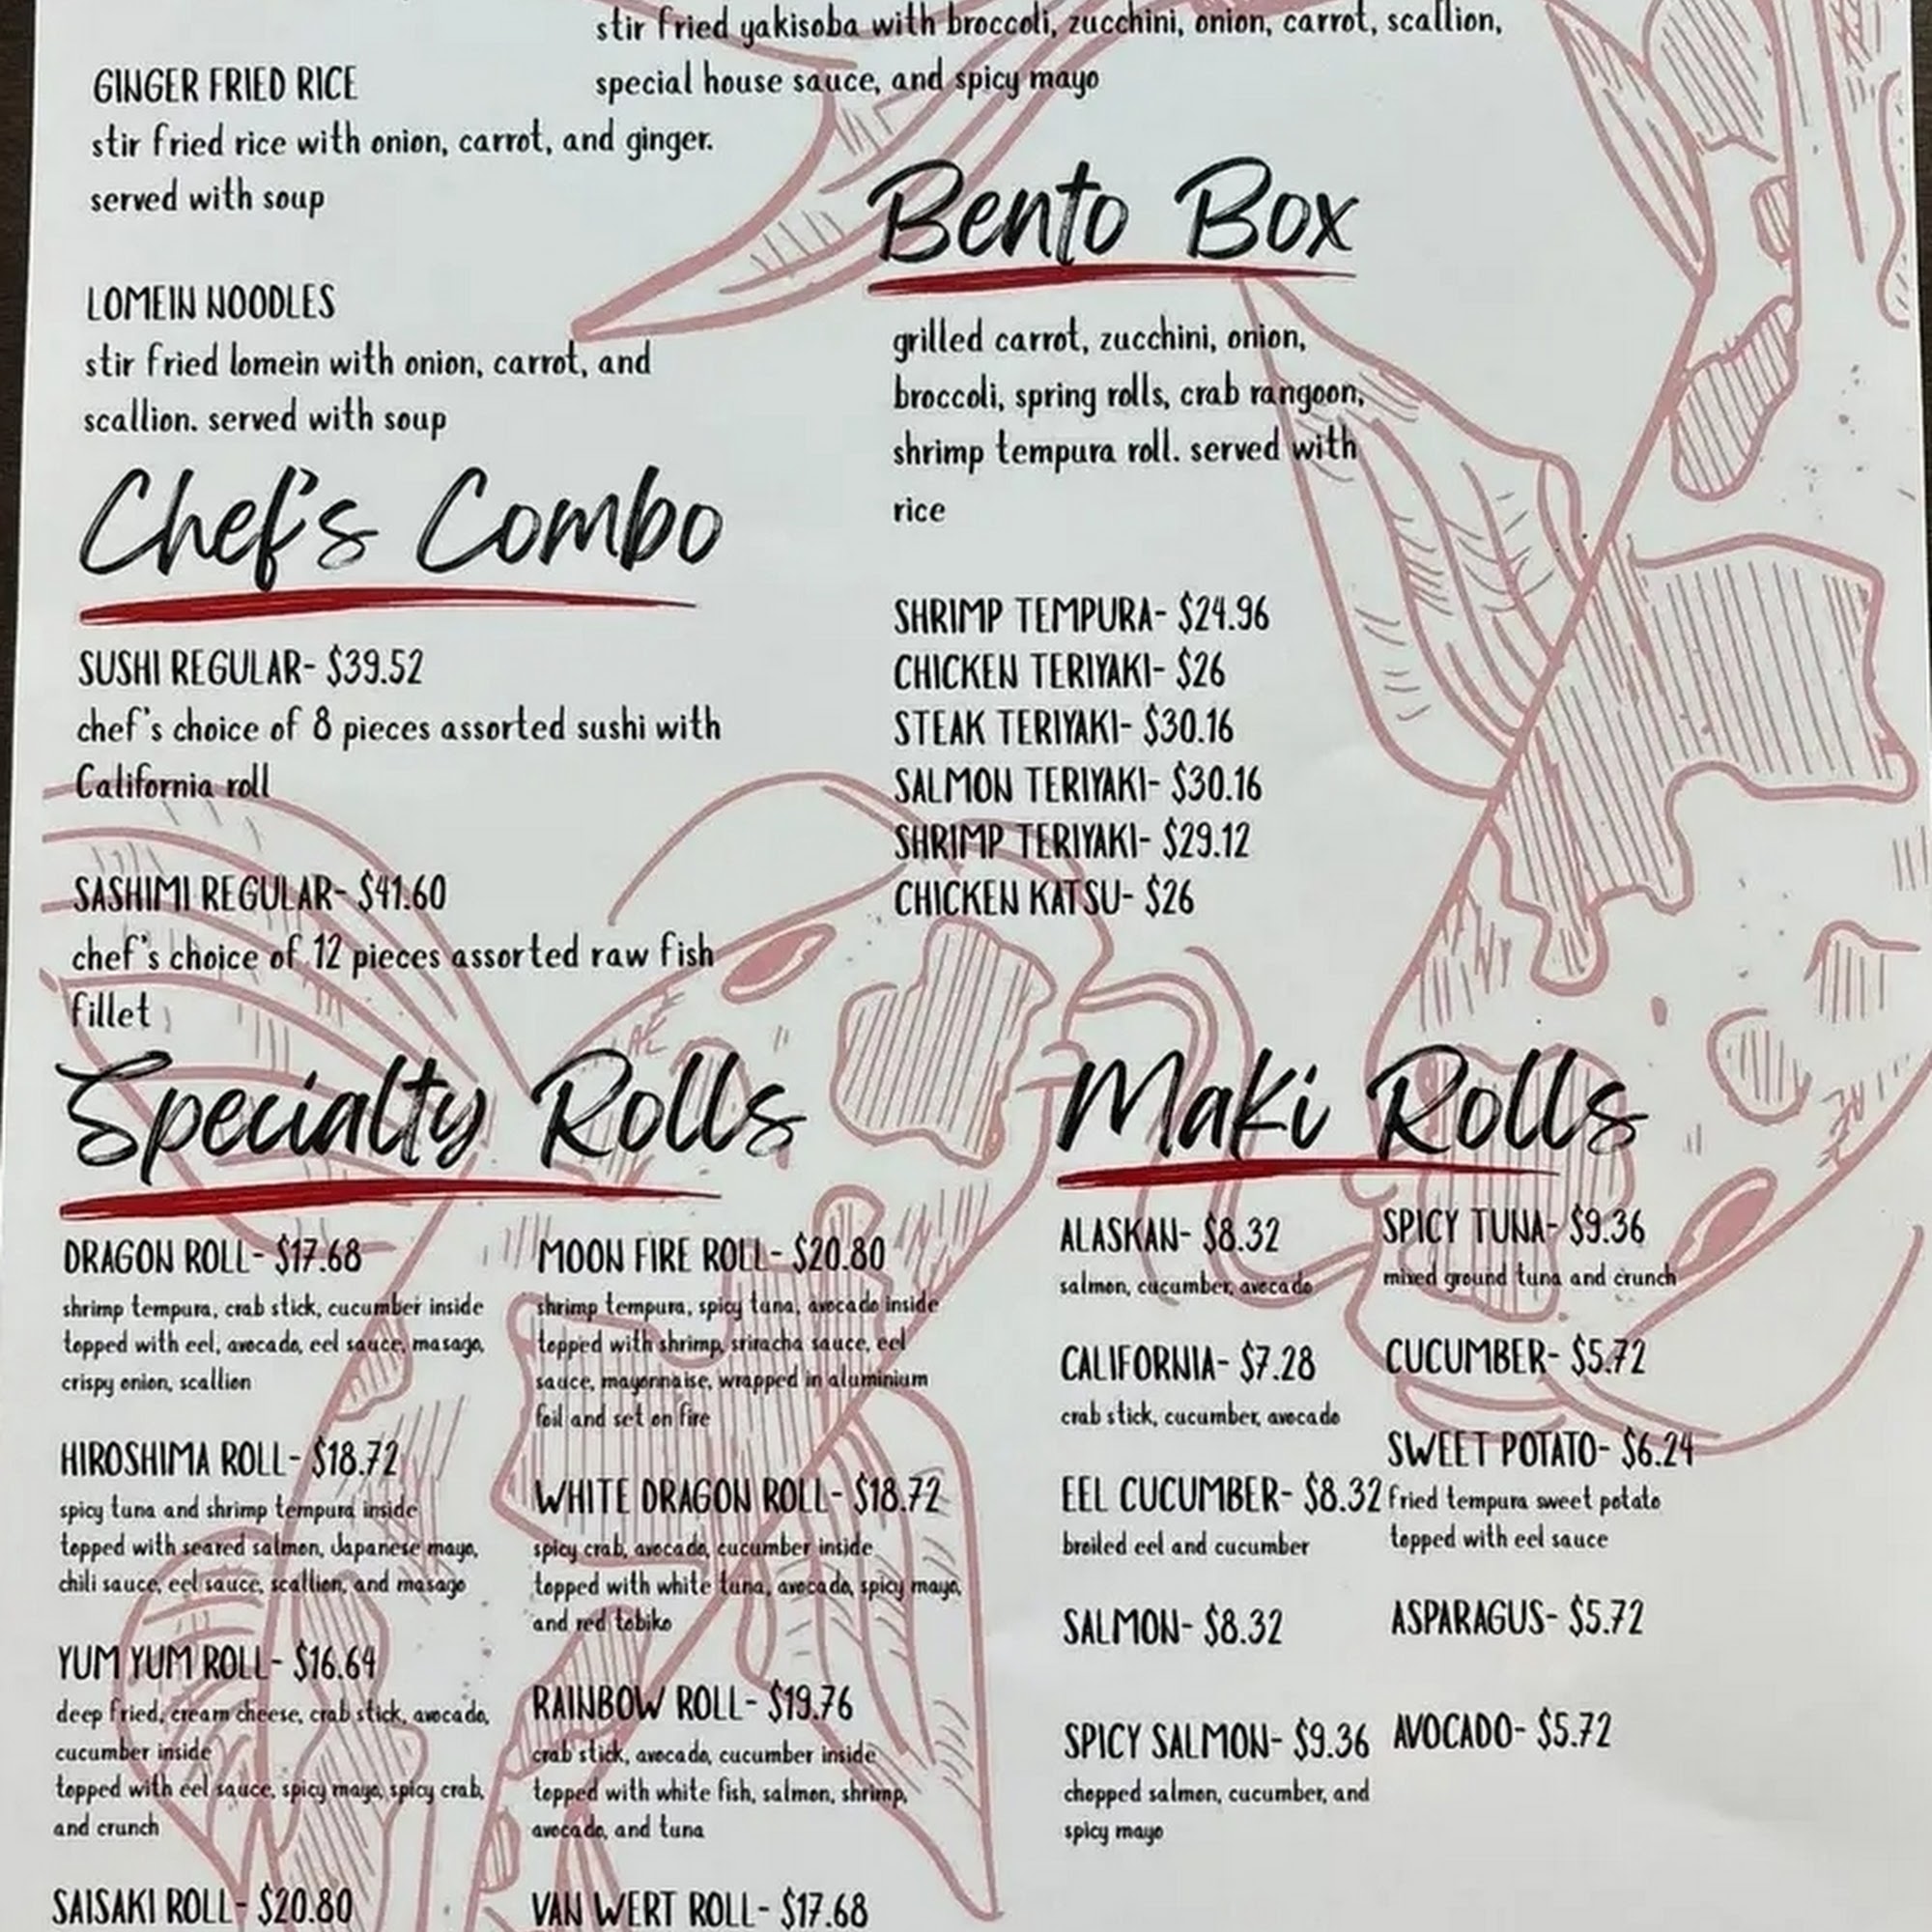 stir fried yakisoba with broccoli, zucchini, onion, carrot, scallion,
special house sauce, and spicy mayo
GINGER FRIED RICE
stir fried rice with onion, carrot, and ginger.
served with soup
LOMEIN NOODLES
stir fried lomein with onion, carrot, and
scallion. served with soup
Chef's Combo
SUSHI REGULAR- $39.52
chef's choice of 8 pieces assorted sushi with
California roll
SASHIMI REGULAR- $41.60
chef's choice of 12 pieces assorted raw fish
fillet
Bento Box
grilled carrot, zucchini, onion,
broccoli, spring rolls, crab rangoon,
shrimp tempura roll. served with
rice
SHRIMP TEMPURA- $24.96
CHICKEN TERIYAKI- $26
STEAK TERIYAKI- $30.16
SALMON TERIYAKI- $30.16
SHRIMP TERIYAKI- $29.12
CHICKEN KATSU- $26
Specialty Rolls
DRAGON ROLL- $17.68
shrimp tempura, crab stick, cucumber inside
topped with eel, avocado, eel sauce, masago,
crispy onion, scallion
HIROSHIMA ROLL- $18.72
spicy tuna and shrimp tempura inside
topped with seared salmon, Japanese mayo,
chili sauce, eel sauce, scallion, and masago
YUM YUM ROLL- $16.64
deep fried, cream cheese, crab stick, avocado,
cucumber inside
topped with eel sauce, spicy mayo, spicy crab,
and crunch
SAISAKI ROLL- $20.80
MOON FIRE ROLL- $20.80
shrimp tempura, spicy tuna, avocado inside
topped with shrimp, sriracha sauce, eel
sauce, mayonnaise, wrapped in aluminium
foil and set on fire
WHITE DRAGON ROLL- $18.72
spicy crab, avocado, cucumber inside
topped with white tuna, avocado, spicy mayo,
and red tobiko
RAINBOW ROLL- $19.76
crab stick, avocado, cucumber inside
topped with white fish, salmon, shrimp,
avocado, and tuna
VAN WERT ROLL- $17.68
Maki Rolls
ALASKAN- $8.32
salmon, cucumber, avocado
CALIFORNIA- $7.28
crab stick, cucumber, avocado
EEL CUCUMBER- $8.32
broiled eel and cucumber
SALMON- $8.32
SPICY SALMON- $9.36
chopped salmon, cucumber, and
spicy mayo
SPICY TUNA- $9.36
mixed ground tuna and crunch
CUCUMBER- $5.72
SWEET POTATO- $6.24
fried tempura sweet potato
topped with eel sauce
ASPARAGUS- $5.72
AVOCADO- $5.72